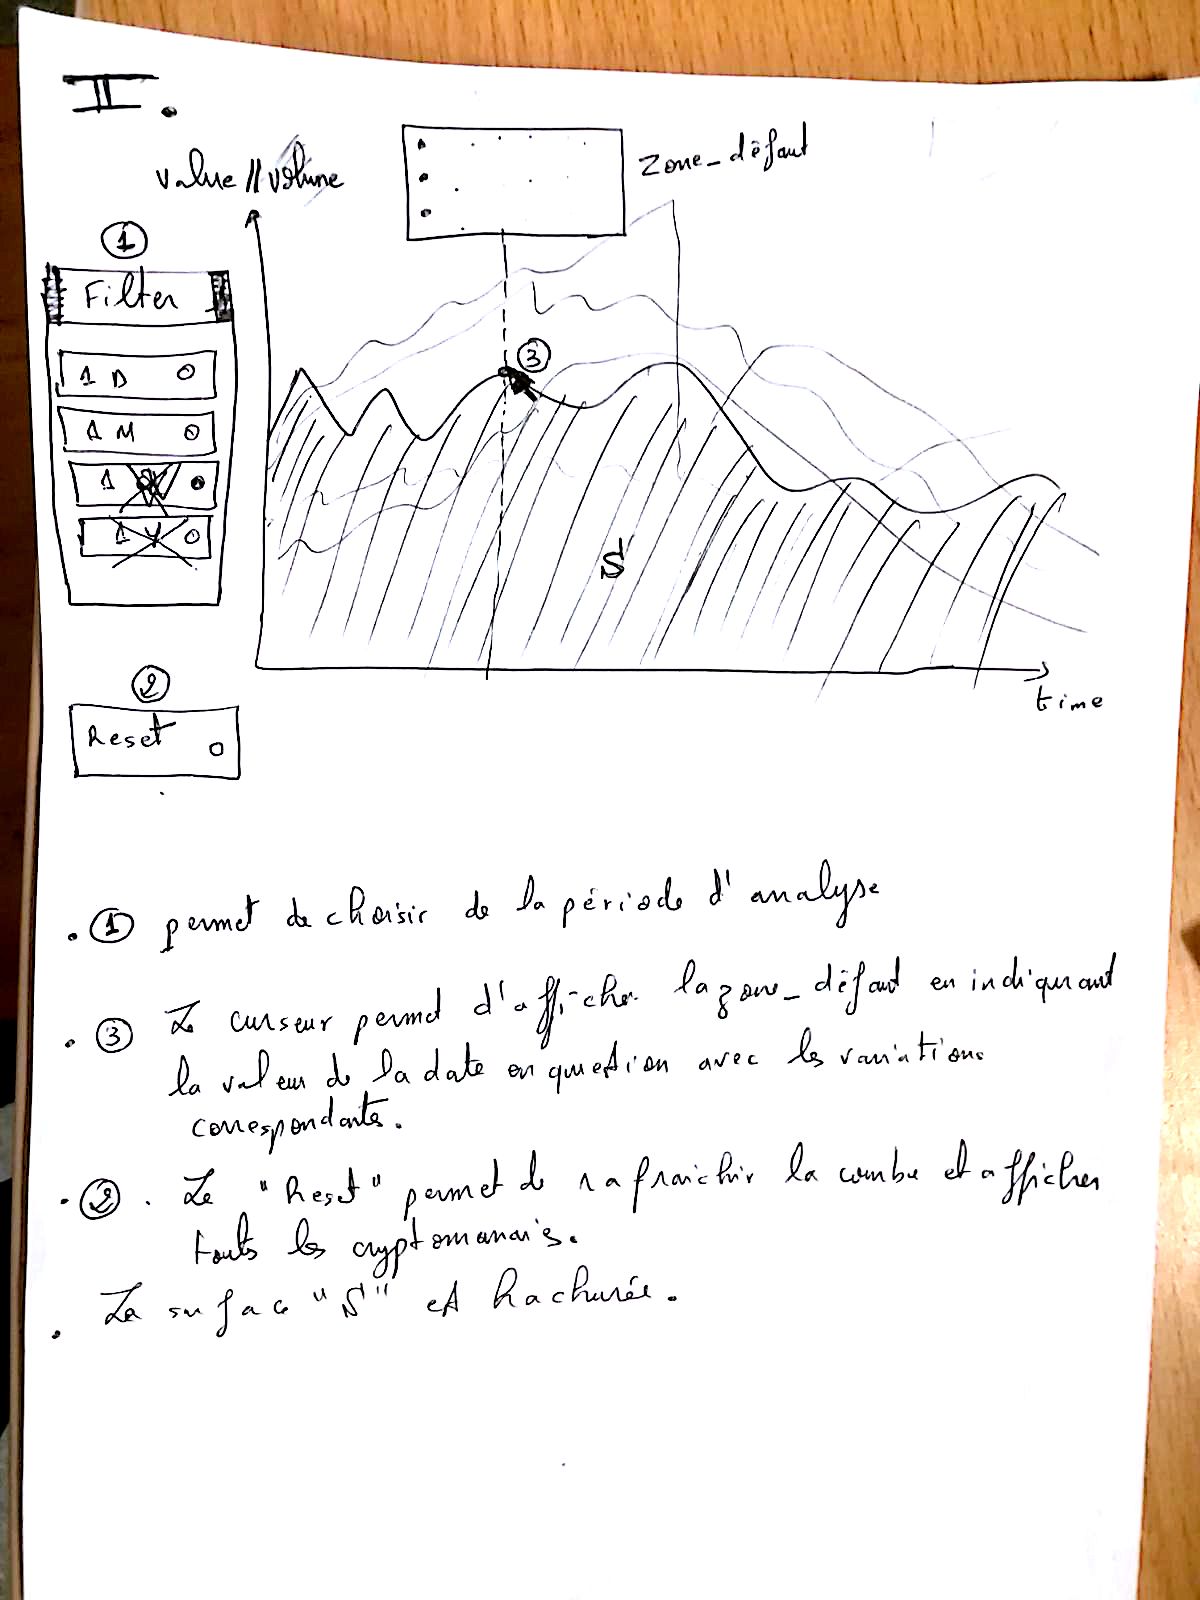 II.
value // volume
zone_défaut
1
Filter
1 D
1 M
1 Y
3
S
time
2
Reset
. 1 permet de choisir de la période d'analyse
. 3 Le curseur permet d'afficher la zone_défaut en indiquant
la valeur de la date en question avec les variations
correspondantes.
. 2 . Le "Reset" permet de rafraichir la courbe et afficher
touts les cryptomonnais.
. La surface "S" est hachurée.